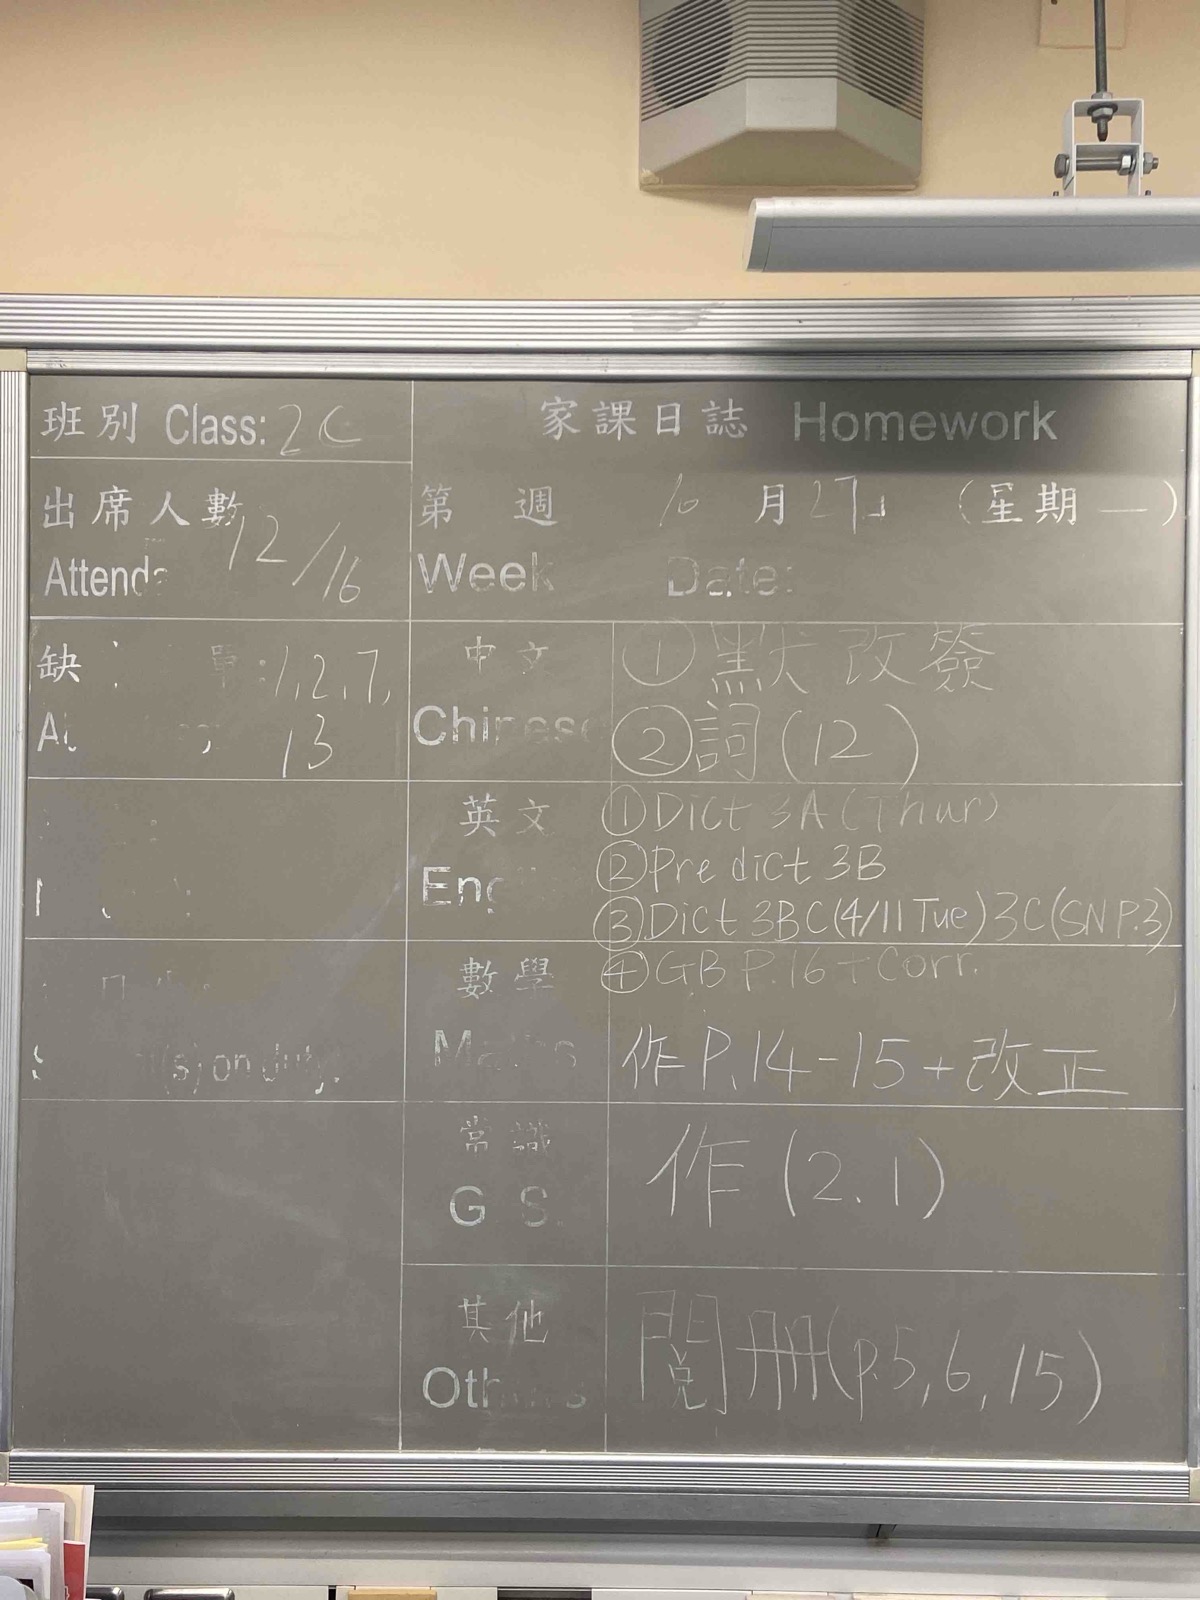 班別 Class: 2C
家課日誌 Homework
出席人數
12/16
第 週 10 月 27日 (星期一)
Week Date:
缺 單: 1, 2, 7,
13
中文
Chinese
①默改簽
②詞(12)
英文
①Dict 3A (Thur)
②Pre dict 3B
③Dict 3BC(4/11 Tue) 3C(SN P.3)
④GB P.16 + Corr.
數學
Maths
作P.14-15+改正
(s) on duty:
常識
G.S.
作(2.1)
其他
Others
閱冊(p.5,6,15)